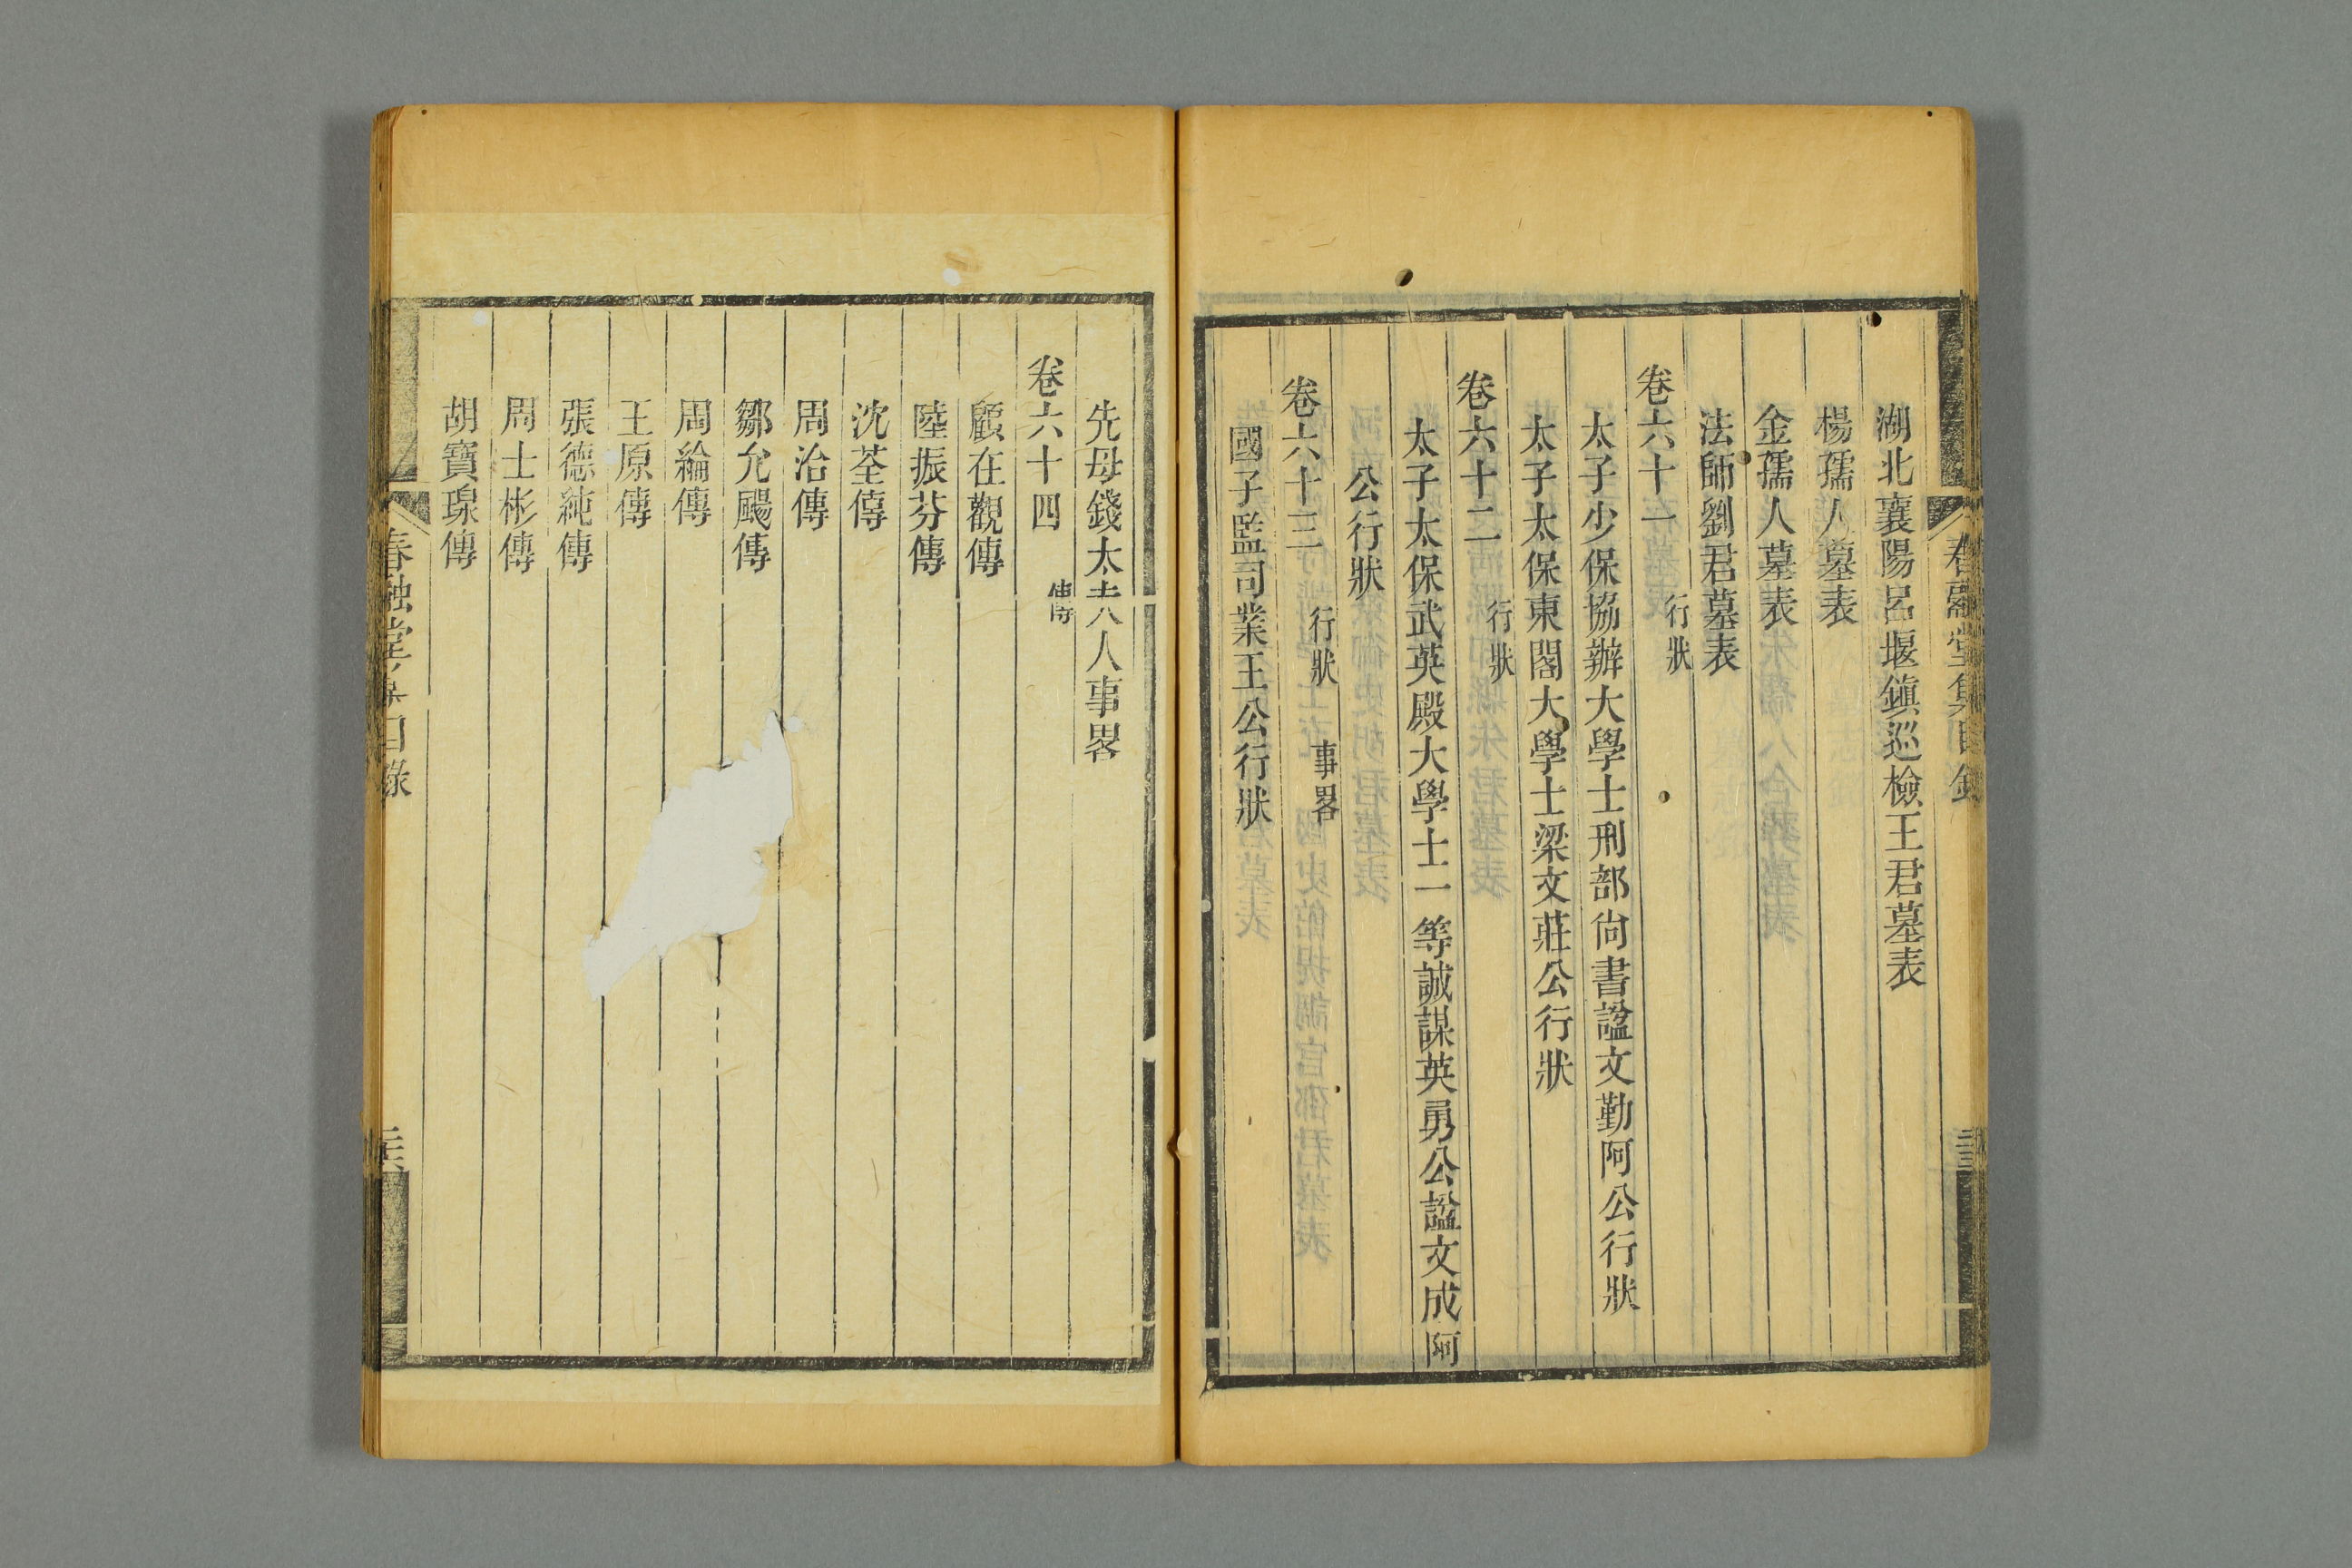 湖北襄陽呂堰鎮巡檢王君墓表
楊孺人墓表
金孺人墓表
法師劉君墓表
卷六十一 行狀
太子少保協辦大學士刑部尙書諡文勤阿公行狀
太子太保東閣大學士梁文莊公行狀
卷六十二 行狀
太子太保武英殿大學士一等誠謀英勇公諡文成阿
公行狀
卷六十三 行狀 事畧
國子監司業王公行狀
先母錢太夫人事畧
卷六十四 傳
顧在觀傳
陸振芬傳
沈荃傳
周洽傳
鄒允颺傳
周綸傳
王原傳
張德純傳
周士彬傳
胡寶瑔傳
春融堂集目錄